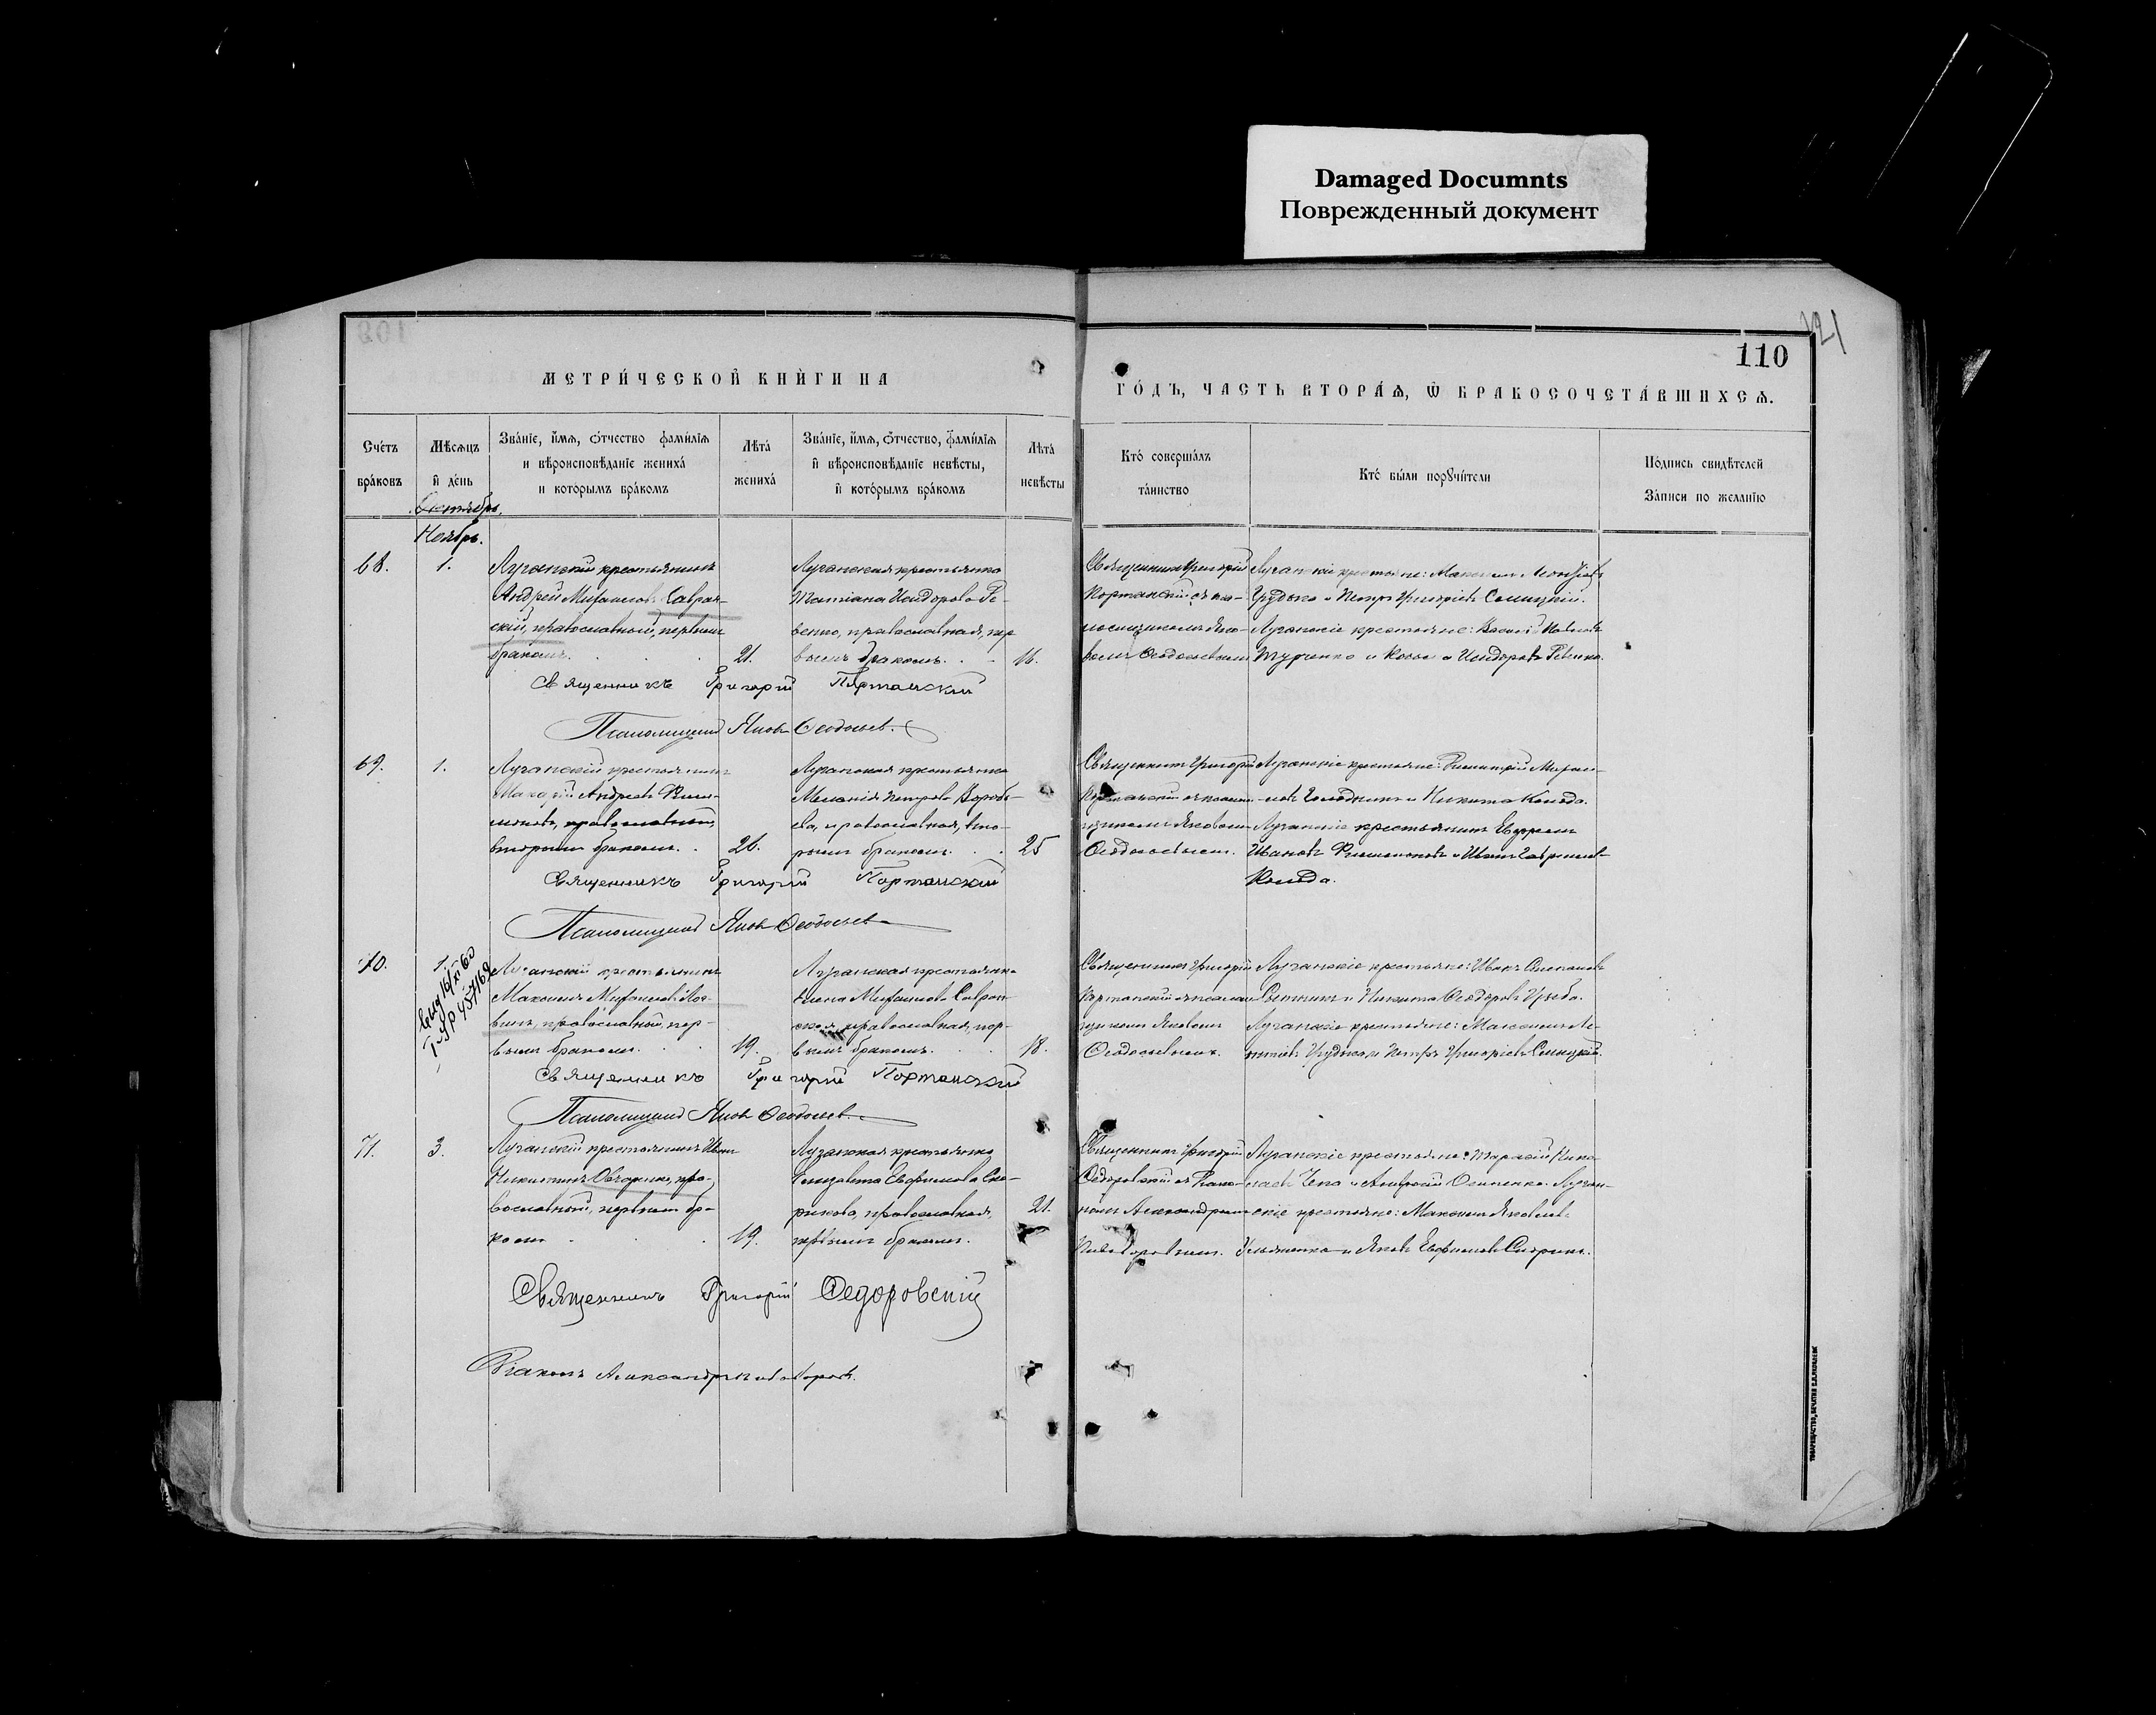 Damaged Documnts
Поврежденный документ
121
110
МЕТРИ́ЧЕСКОЙ КНИ́ГИ НА
ГО́ДЪ, ЧАСТЬ ВТОРА́Ѧ, Ѿ БРАКОСОЧЕТА́ВШИХСѦ.
Сче́тъ бра́ковъ
Мѣ́сѧцъ и҆ де́нь
Зва́нїе, и҆́мѧ, ѻ҆́тчество фами́лїѧ и вѣроисповѣ́данїе жениха́ и кото́рымъ бра́комъ
Лѣта́ жениха́
Зва́нїе, и҆́мѧ, ѻ҆́тчество, фами́лїѧ и҆ вѣроисповѣ́данїе невѣ́сты, и҆ кото́рымъ бра́комъ
Лѣта́ невѣ́сты
Кто́ соверша́лъ та́инство
Кто́ бы́ли порꙋчи́тели
По́дпись свидѣ́телей За́писи по жела́нїю
Октябрь.
Ноябрь.
68.
1.
Луганскій крестьянинъ
Андрей Михаиловъ Савран-
скій, православный, первымъ
бракомъ.
21.
Луганская крестьянка
Татіана Исидорова Ре-
венко, православная, пер
вымъ бракомъ.
16.
Священникъ Григорій
Портанскій съ пса-
ломщикомъ Яко-
вомъ Ѳеодосьевымъ
Луганскіе крестьяне: Максимъ
Гудько и Петръ Григорьевъ Селицкій.
Луганскіе крестьяне: Василій
Туренко и Косьма Исидоровъ Ревенко.
Священникъ Григорій Портанскій
Псаломщикъ Яковъ Ѳеодосьев.
69.
1.
Луганскій крестьянинъ
Макарій Андреевъ Фили-
моновъ, православный,
вторымъ бракомъ.
26.
Луганская крестьянка
Меланія Петрова Воробь-
ева, православная, вто-
рымъ бракомъ.
25
Священникъ Григорій
Портанскій съ псалом-
щикомъ Яковомъ
Ѳеодосьевымъ.
Луганскіе крестьяне: Димитрій Михаи-
ловъ Голодникъ и Никита Коляда.
Луганскіе крестьянинъ Евфремъ
Ивановъ Филимоновъ и Иванъ Гавриловъ
Коляда.
Священникъ Григорій Портанскій
Псаломщикъ Яковъ Ѳеодосьевъ
70.
1.
выд 16/XI 60
457162
Луганскій крестьянинъ
Максимъ Михаиловъ
православный, пер-
вымъ бракомъ.
19.
Луганская крестьянка
Елена Михаилова Савран-
ская, православная, пер-
вымъ бракомъ.
18.
Священникъ Григорій
Портанскій съ псалом-
щикомъ Яковомъ
Ѳеодосьевымъ.
Луганскіе крестьяне: Иванъ Степановъ
и Никита Ѳеодоровъ
Луганскіе крестьяне: Максимъ Ле-
онтіевъ Гудько и Петръ Григорьевъ Селицкій.
Священникъ Григорій Портанскій
Псаломщикъ Яковъ Ѳеодосьев.
71.
3.
Луганскій крестьянинъ Иванъ
Никитинъ Овчаринъ, пра-
вославный, первымъ бра-
комъ
19.
Луганская крестьянка
Елизавета Евфимова Ско-
рикова, православная,
первымъ бракомъ.
21.
Священникъ Григорій
Ѳедоровскій съ діако-
номъ Александромъ
Луганскіе крестьяне: Тарасій Нико-
лаевъ Чепа и Амвросій Осипенко. Луган-
скіе крестьяне: Максимъ Яковлевъ
и Яковъ Евфимовъ Скорикъ.
Священникъ Григорій Ѳедоровскій
Діаконъ Александръ